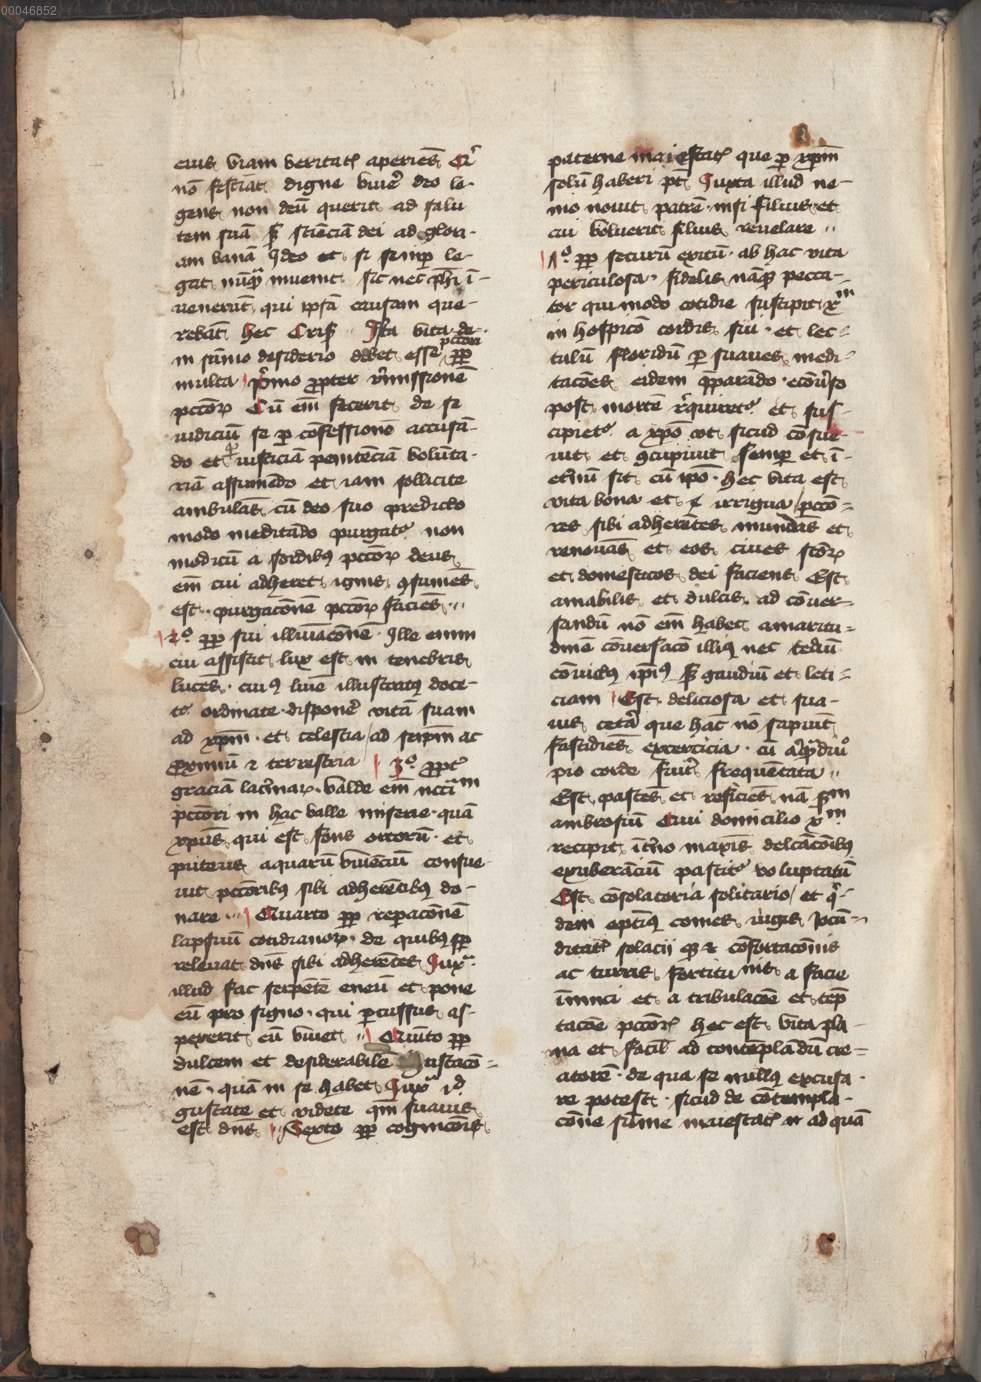 00046852
eius viam veritatꝭ aperiēs Qr̉
nō festīat digne viuẻ deo le-
gens non deū querit ad salu
tem suā sꝫ sciēciā dei ad glori-
am vanā Ideo et si semꝑ le-
gat nūqͣ inuenit sic nec ph̄i ī-
uenerūt qui ip̄sā causam que-
rebāt hec Cris Ista vita
in sūmo desiderio debet esse pctori ꝓp̄
multa pͥmo ꝓpter remissionē
pctoꝝ Cū em̄ fecerit de se
iudiciū se ꝑ cōfessionē accusā-
do et iusticiā penitēciā volūta-
riā assumēdo et iam sollicite
ambulās cū deo suo predicto
modo meditādo purgatᷣ non
modicū a sordibꝰ pctōꝝ deus
em̄ cui adheret ignis ꝯsumēs
est purgacōnē pctōꝝ faciēs
2ͦ ꝓp̄ sui illuīacōnē Ille enim
cui assistit lux est in tenebris
lucēs cuiꝰ luīe illustratꝰ doce-
tᷣ ordinate disponẻ vitā suam
ad xp̄m et celestia ad seip̄m ac
proximū et terrestria 3ͦ ꝓpt̉
graciā lacͥmaꝝ valde em̄ nccͥaͫ
pctōri in hac valle miserie quā
xp̄us qui est fons ortorū et
puteus aquarū viuēciū consue-
uit pctōribꝰ sibi adherētibꝰ do-
nare Quarto ꝓp̄ reparacōnē
lapsuū cotidianoꝝ de quibꝰ sꝑ
releuat dn̄s sibi adherētes Juxͣ
illud fac serpētē eneū et pone
eū pro signo qui percussus as-
pexerit eū viuet Quīto ꝓp̄
dulcem et desiderabilē
nē quā in se habet Juxͣ id
gustate et videte qm̄ suauis
est dn̄s Sexto ꝓp̄ cognicōnē
paterne maiestatꝭ que ꝑ xp̄m
solū haberi pt̄ Juxta illud ne-
mo nouit patrē nisi filius et
cui voluerit filius reuelare
ꝓp̄ securū exitū ab hac vita
periculosa fidelis nāqꝫ pecca-
tor qui modo cotidie suscipit xͫ
in hospiciū cordis sui et lec-
tulū floridū ꝑ suaues medi-
tacōes eidem ꝓparādo ecōuͥso
post mortē reͥquiretᷣ et sus-
cipietᷣ a xp̄o sicud cōsue-
uit et ꝯcupiuit semꝑ et ī-
et̉nū sit cū ip̄o hec vita est
vita bona et irrigua pctō-
res sibi adherētes mundās et
renouās et eos ciues sc̄oꝝ
et domesticos dei faciens Est
amabilis et dulcis ad cōuer-
sandū nō em̄ habet amaritu-
dinē cōuersacō illiꝰ nec tediū
cōuictꝰ ip̄iꝰ sꝫ gaudiū et leti-
ciam Est deliciosa et sua-
uis cet̉a que hāc nō sapiūt
fastidiēs excercicia cū
pio corde fūīt frequētata
Est pascēs et reficiēs nā sͫ
ambrosiū Qui domicilio xͫ
recipit īt̉no maxīs delc̄acōibꝰ
exuberāciū pascitᷣ voluptatū
Est cōsolatoria solitario et qͥ-
dem optīꝰ comes iugis iocū-
ditatꝭ solacii et cōfortacōnis
ac turris fortitudinis a facie
inimici et a tribulacōe et tēp-
tacōe pctōꝝ hec est vita pla-
na et facil̉ ad contemplandū cre-
atorē de qua se nullꝰ excusa-
re potest sicud de cōtempla-
cōne sūme maiestatꝭ ad quā